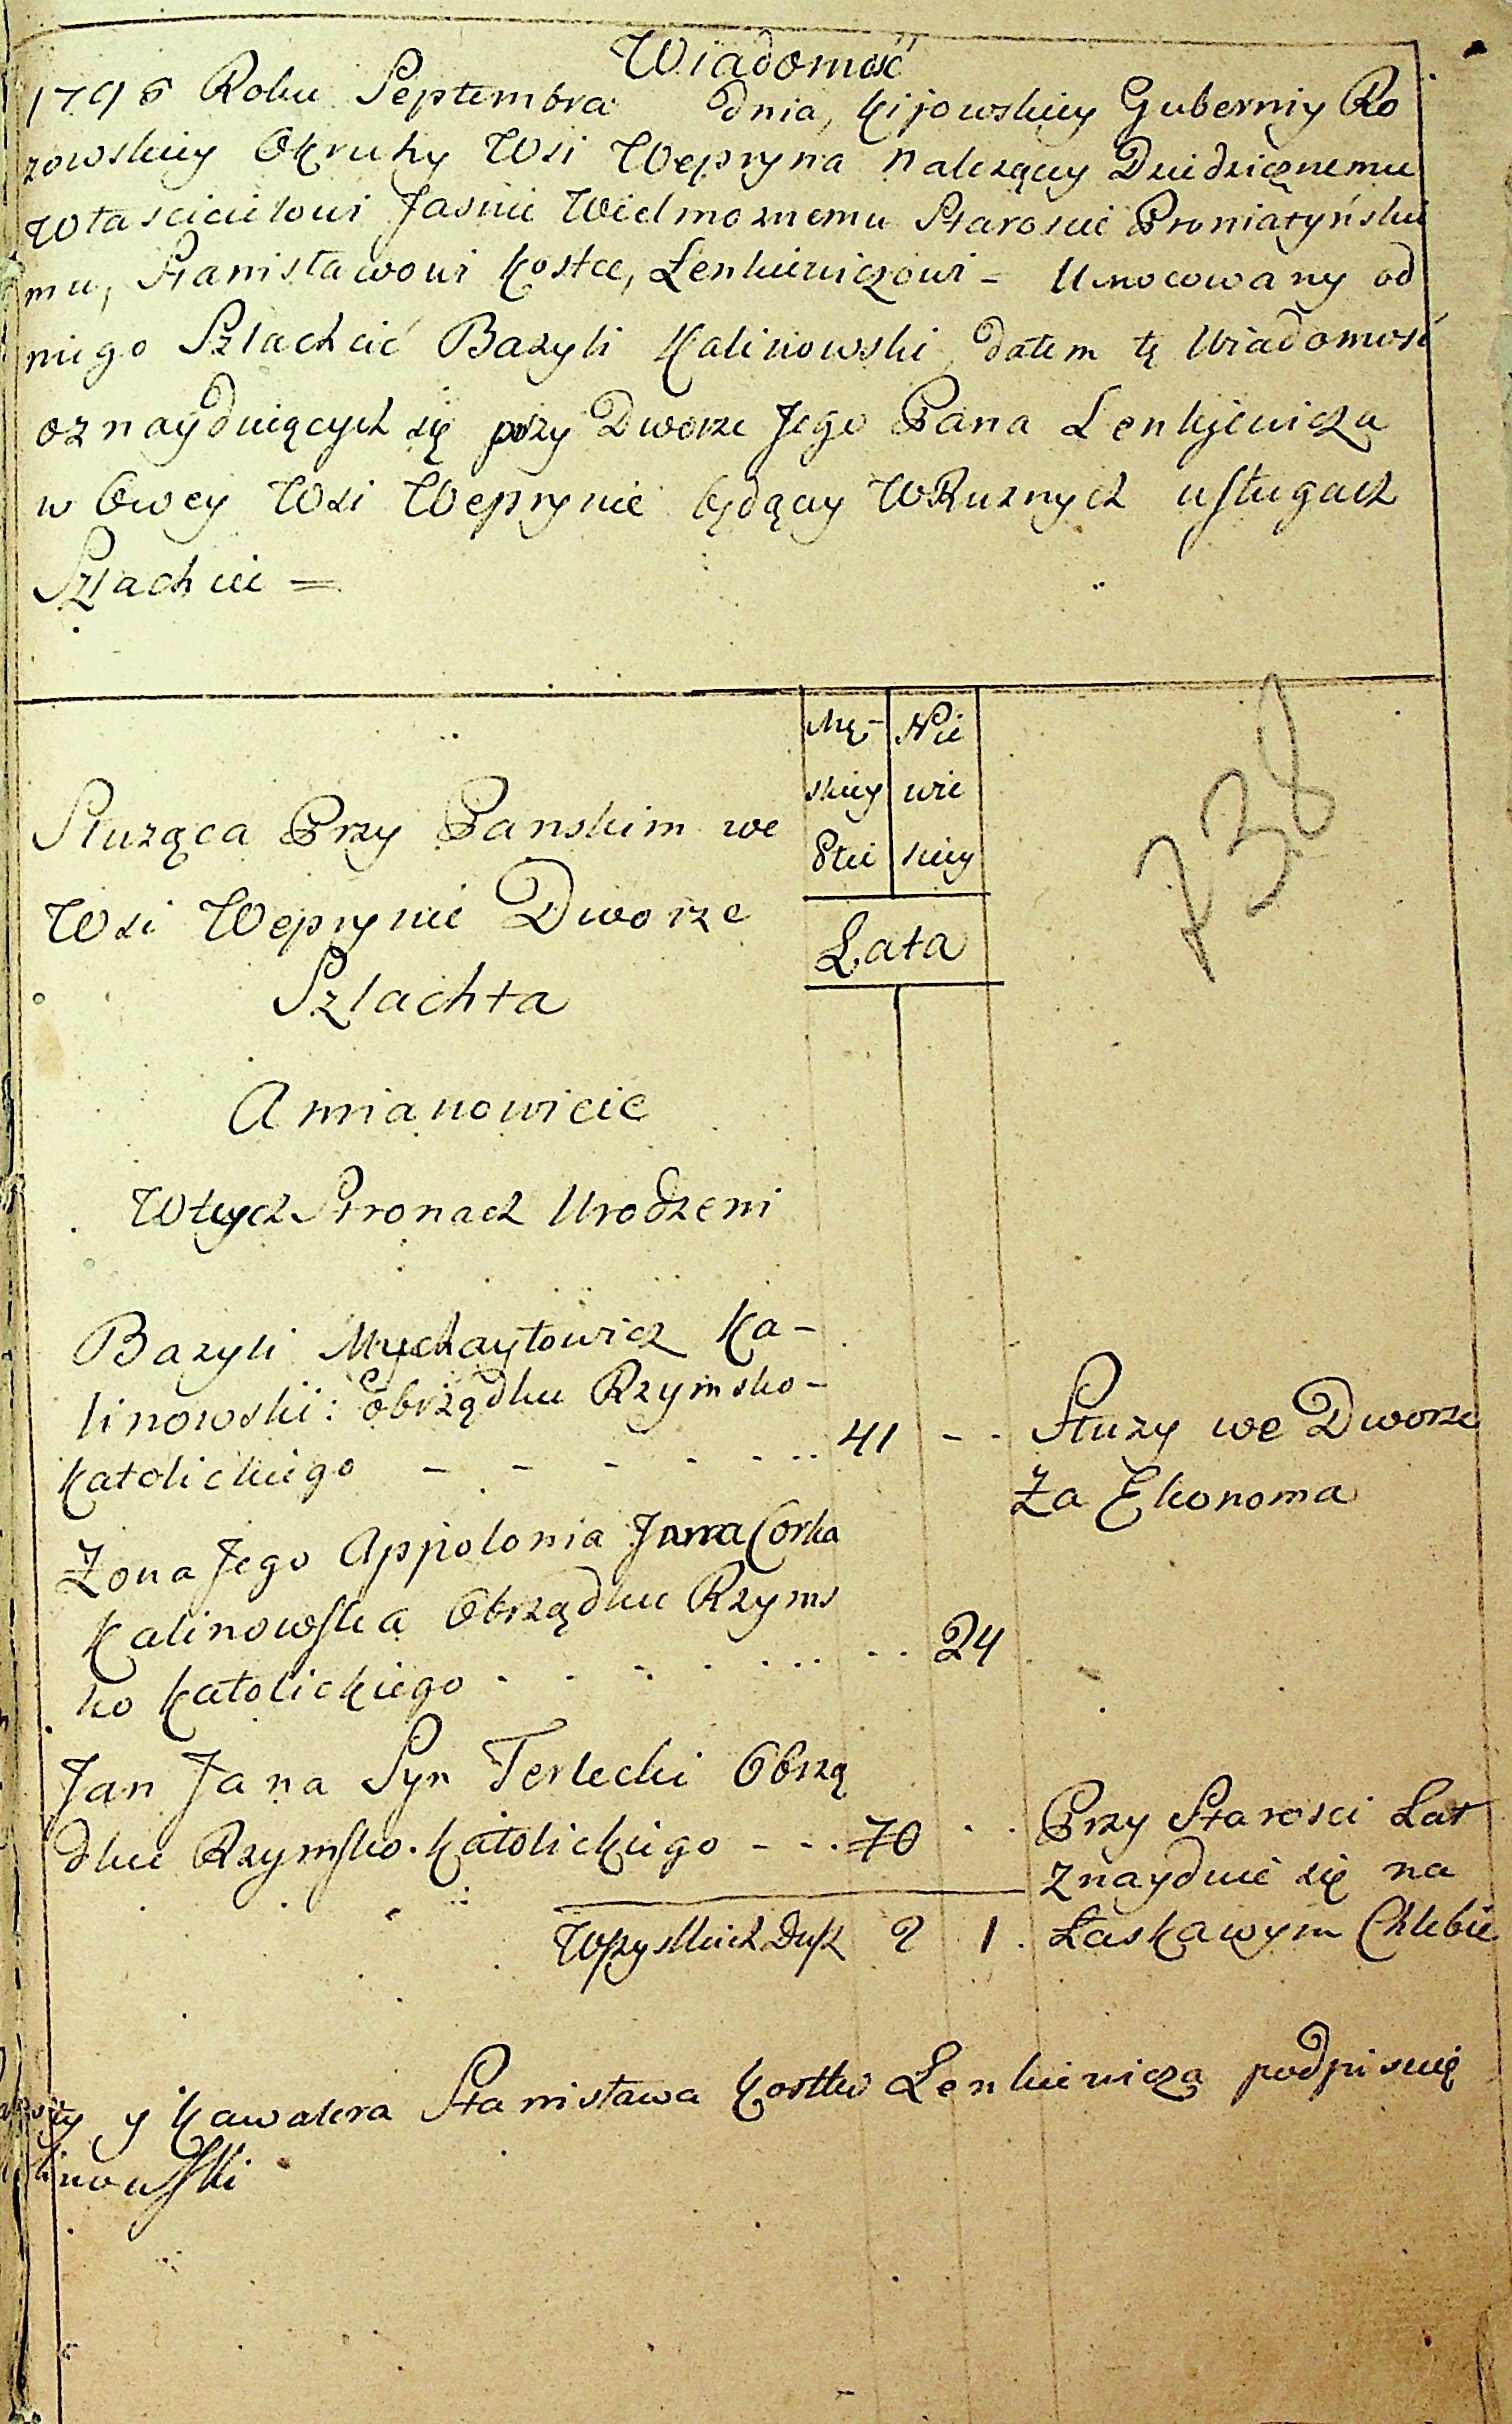 Wiadomość
1795 Roku Septembra dnia, Kijowskiey Guberniy Ro
zowskiey Okruhy Wsi Wepryna należący Dziedzicznemu
Włascicielowi Jasnie Wielmoznemu Staroscie Proniatyńskie
mu, Stanisławowi Kostce, Lenkiewiczowi - Umocowany od
niego Szlachcić Bazyli Kalinowski dałem tę Wiadomość
oznayduiących się przy Dworze Jego Pana Lenkiewicza
w Owey Wsi Weprynie będący WRuznych usługach
Szlachcie =
Mę- Nie
skiey wie
Płci sciey
Służąca Przy Panskim we
Wsi Weprynie Dworze
Szlachta
Lata
738
Amianowicie
Wtych Stronach Urodzeni
Bazyli Mychayłowicz Ka-
linowski: obrządku Rzymsko-
Katolickiego - - - - - .. 41 - - Służy we Dworze
Za Ekonoma
Żona Jego Appolonia Corka
Kalinowska Obrządku Rzyms
ko Katolickiego - - - . ... .. 24
Jan Jana Syn Terlecki Obrzą
dku Rzymsko. Katolickiego - - . 70 . . Przy Starosci Lat
znayduie się na
Wszystkich Dusz 2 1 . Łaskawym Chlebie
y Kawalera Stanisława Kostki Lenkiewicza podpisuię
linowski